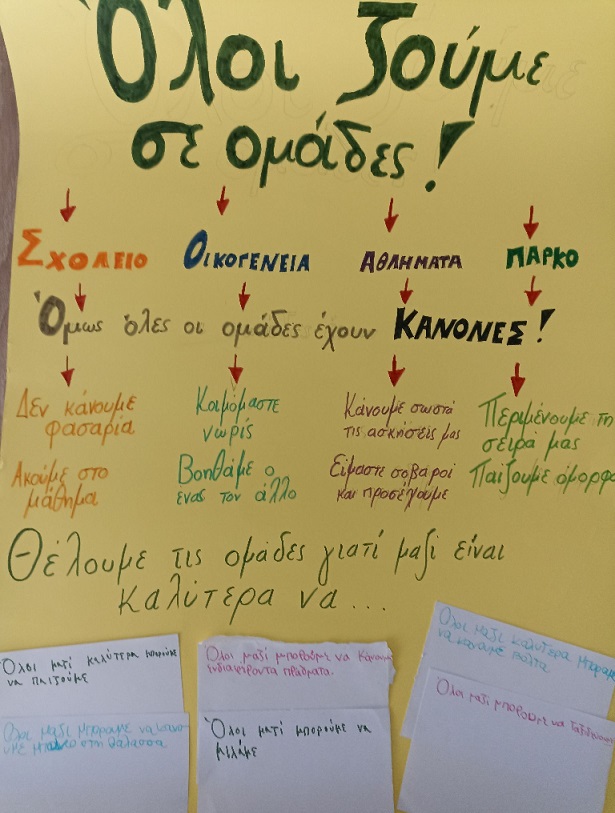 Όλοι ζούμε
σε ομάδες!
ΣΧΟΛΕΙΟ ΟΙΚΟΓΕΝΕΙΑ ΑΘΛΗΜΑΤΑ ΠΑΡΚΟ
Όμως όλες οι ομάδες έχουν ΚΑΝΟΝΕΣ!
Δεν κάνουμε
φασαρία
Ακούμε στο
μάθημα
Κοιμόμαστε
νωρίς
Βοηθάμε ο
ένας τον άλλο
Κάνουμε σωστά
τις ασκήσεις μας
Είμαστε σοβαροί
και προσέχουμε
Περιμένουμε τη
σειρά μας
Παίζουμε όμορφα
Θέλουμε τις ομάδες γιατί μαζί είναι
καλύτερα να...
Όλοι ματί καλύτερα μπορούμε
να παιζουμε
Ολοι μαζι μποραμε να κανο
υμε μπανιο στη θαλασσα
Όλοι μαζί μπορούμε να κάνουμε
ενδιαφέροντα πράγματα.
Όλοι ματί μπορούμε να
μιλάμε
Ολοι μαζι καλυτερα μπορουμε
να κανουμε βολτα
Ολοι μαζι μπορουμε να ταξιδευουμε